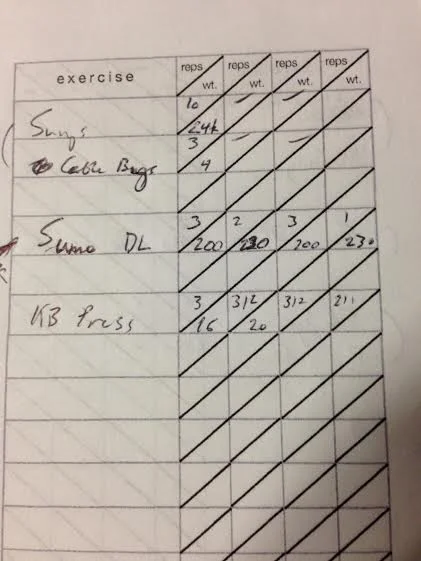 exercise reps wt. reps wt. reps wt. reps wt.
10 – –
Swings 24k
3 – –
Cable 4
3 2 3 1
Sumo DL 200 230 200 230
3 3/2 3/2 2/1
KB Press 16 20